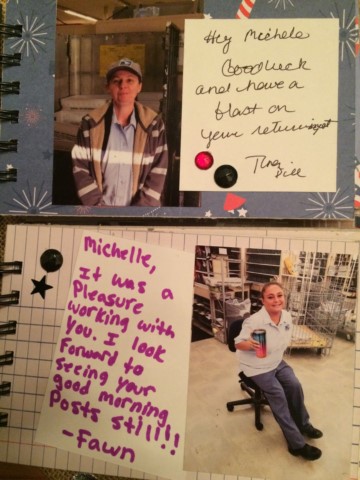 Hey Michele
Good luck
and have a
blast on
your retirement
Tina
Michelle,
It was a
Pleasure
working with
you. I look
Forward to
seeing your
good morning
Posts still!!!
-Fawn